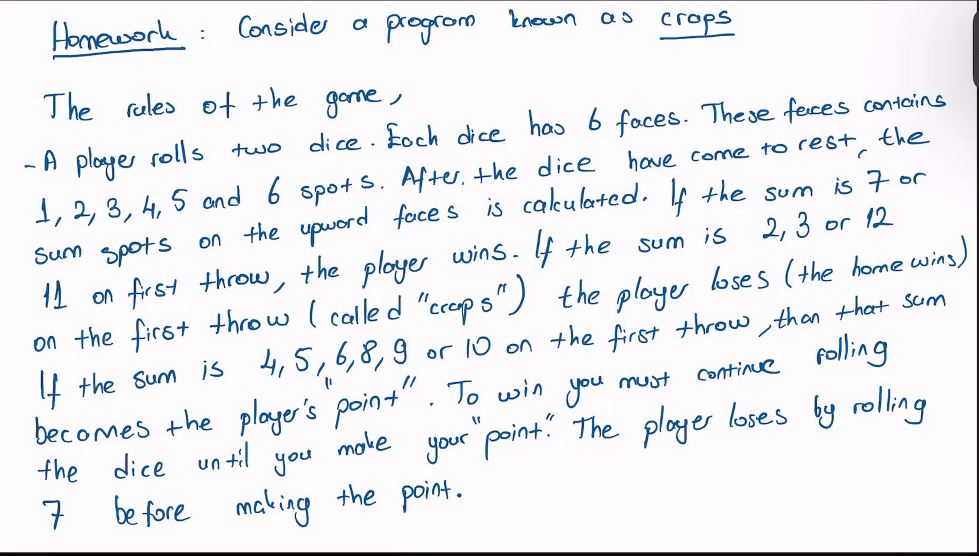 Homework : Consider a program known as craps
The rules of the game,
- A player rolls two dice. Each dice has 6 faces. These faces contains
1, 2, 3, 4, 5 and 6 spots. After, the dice have come to rest, the
sum spots on the upword faces is calculated. If the sum is 7 or
11 on first throw, the player wins. If the sum is 2, 3 or 12
on the first throw (called "craps") the player loses (the home wins)
If the sum is 4, 5, 6, 8, 9 or 10 on the first throw, than that sum
becomes the player's "point". To win you must continue rolling
the dice until you make your "point." The player loses by rolling
7 before making the point.